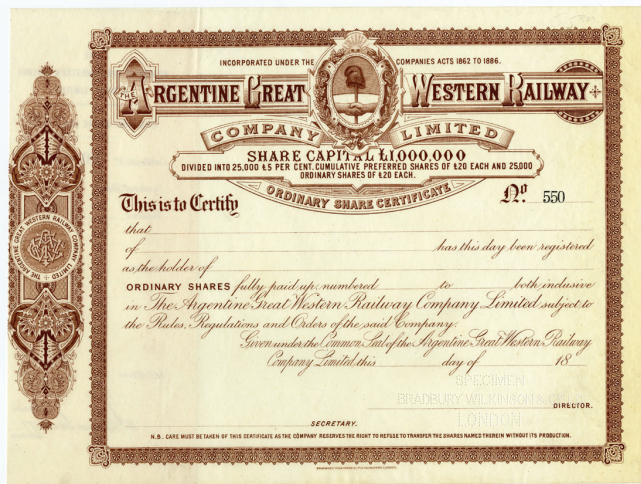 INCORPORATED UNDER THE COMPANIES ACTS 1862 TO 1886.
THE ARGENTINE GREAT WESTERN RAILWAY
COMPANY LIMITED
SHARE CAPITAL £1,000,000
DIVIDED INTO 25,000 £5 PER CENT. CUMULATIVE PREFERRED SHARES OF £20 EACH AND 25,000
ORDINARY SHARES OF £20 EACH.
ORDINARY SHARE CERTIFICATE
This is to Certify
No 550
that
of has this day been registered
as the holder of
ORDINARY SHARES fully paid up, numbered to both inclusive
in The Argentine Great Western Railway Company Limited subject to
the Rules, Regulations and Orders of the said Company.
Given under the Common Seal of the Argentine Great Western Railway
Company Limited, this day of 18
SPECIMEN
BRADBURY WILKINSON &
LONDON
DIRECTOR.
SECRETARY.
N.B. CARE MUST BE TAKEN OF THIS CERTIFICATE AS THE COMPANY RESERVES THE RIGHT TO REFUSE TO TRANSFER THE SHARES NAMED THEREIN WITHOUT ITS PRODUCTION.
THE ARGENTINE GREAT WESTERN RAILWAY COMPANY LIMITED